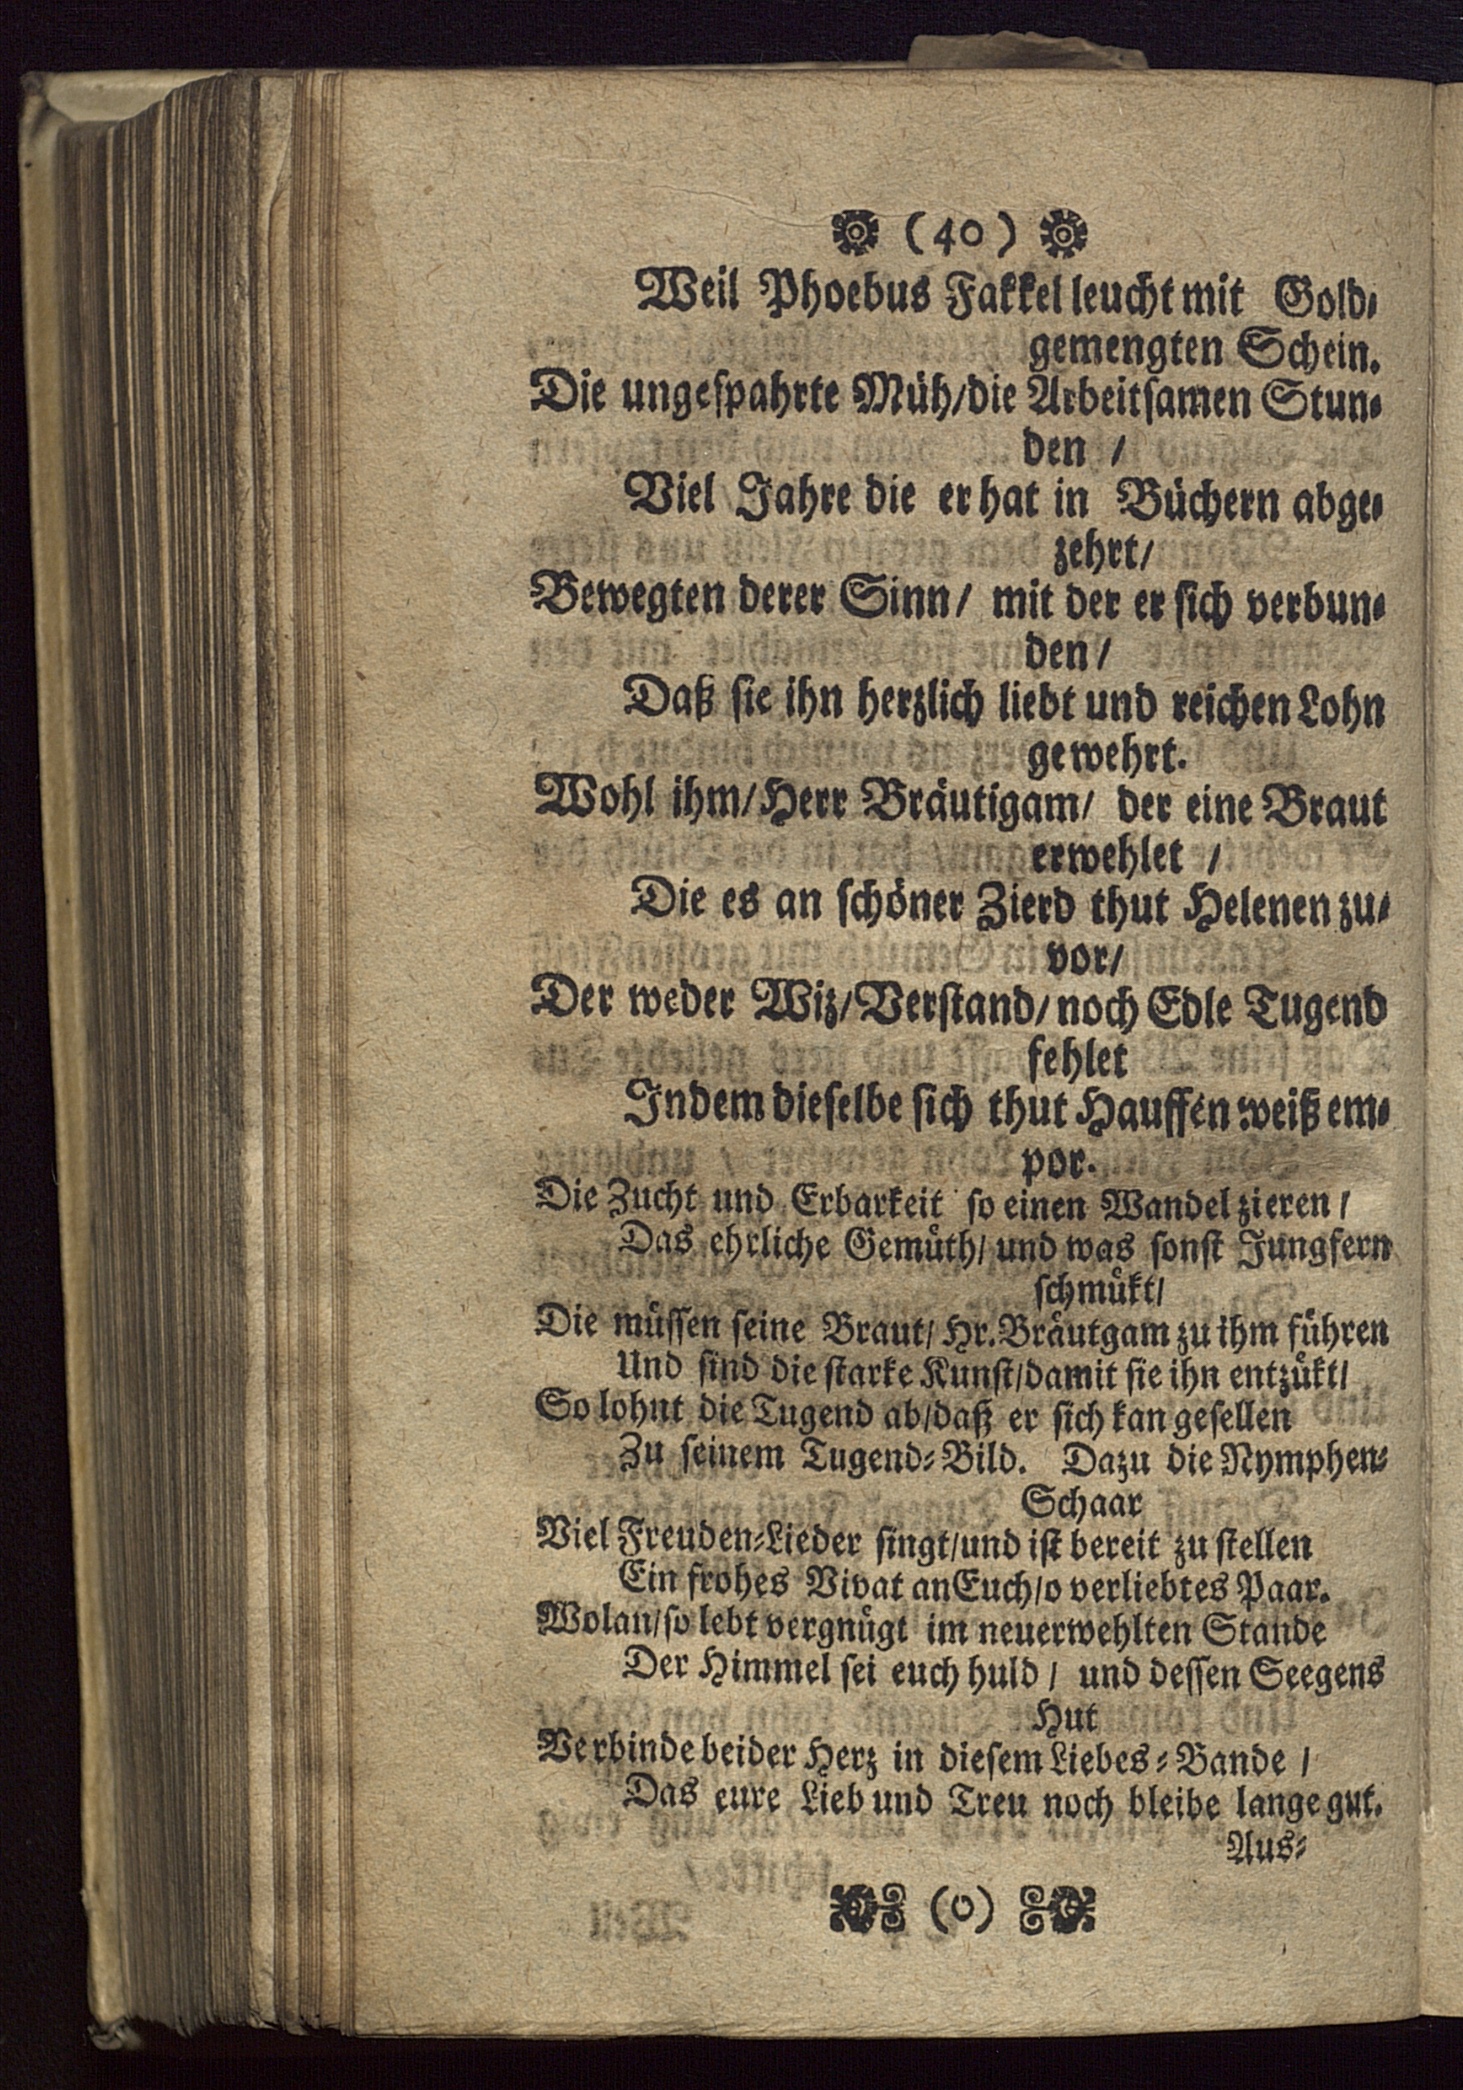 (40)
Weil Phoebus Fakkel leucht mit Gold⸗
gemengten Schein.
Die ungeſpahrte Müh/die Arbeitſamen Stun⸗
den /
Viel Jahre die er hat in Büchern abge⸗
zehrt/
Bewegten derer Sinn/ mit der er ſich verbun⸗
den/
Daß ſie ihn herzlich liebt und reichen Lohn
gewehrt.
Wohl ihm/Herr Bräutigam/ der eine Braut
erwehlet /
Die es an ſchöner Zierd thut Helenen zu⸗
vor/
Der weder Wiz/Verſtand/noch Edle Tugend
fehlet
Indem dieſelbe ſich thut Hauffen weiß em⸗
por.
Die Zucht und Erbarkeit ſo einen Wandel zieren/
Das ehrliche Gemüth/ und was ſonſt Jungfern
ſchmükt/
Die müſſen ſeine Braut/ Hr. Bräutgam zu ihm führen
Und ſind die ſtarke Kunſt/damit ſie ihn entzükt/
So lohnt die Tugend ab/daß er ſich kan geſellen
Zu ſeinem Tugend⸗Bild. Dazu die Nymphen⸗
Schaar
Viel Freuden⸗Lieder ſingt/und iſt bereit zu ſtellen
Ein frohes Vivat an Euch/o verliebtes Paar.
Wolan/ſo lebt vergnügt im neuerwehlten Stande
Der Himmel ſei euch huld / und deſſen Seegens
Hut
Verbinde beider Herz in dieſem Liebes⸗Bande /
Das eure Lieb und Treu noch bleibe lange gut.
Aus⸗
(0)